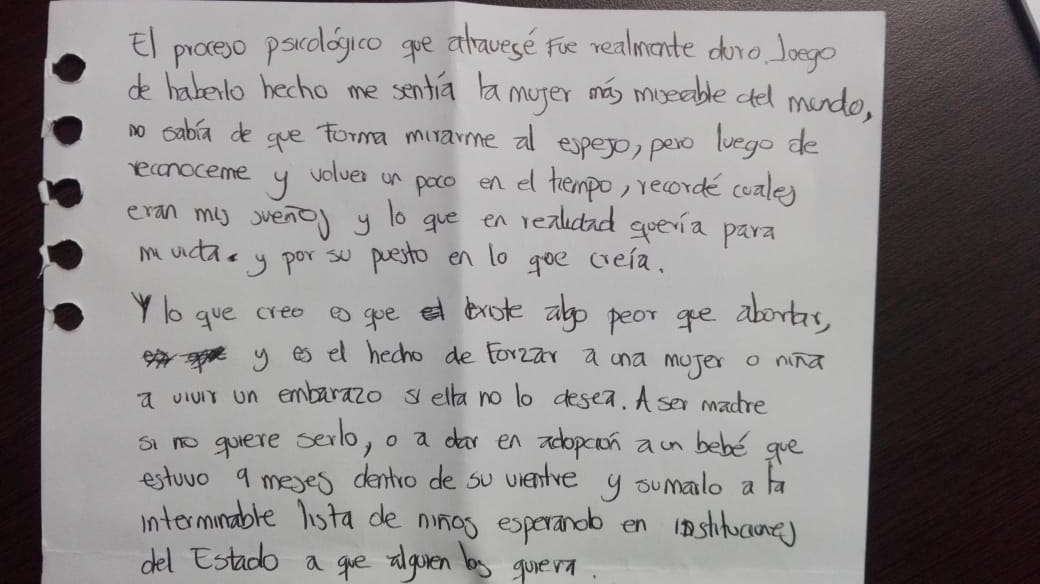 El proceso psicológico que atravesé fue realmente duro. Luego
de haberlo hecho me sentía la mujer más miserable del mundo,
no sabía de que forma mirarme al espejo, pero luego de
reconoceme y volver un poco en el tiempo, recordé cuales
eran mis sueños y lo que en realidad quería para
mi vida. y por su puesto en lo que creía.
Y lo que creo es que existe algo peor que abortar,
y es el hecho de forzar a una mujer o niña
a vivir un embarazo si ella no lo desea. A ser madre
si no quiere serlo, o a dar en adopción a un bebé que
estuvo 9 meses dentro de su vientre y sumarlo a la
interminable lista de niños esperando en instituciones
del Estado a que alguien los quiera.